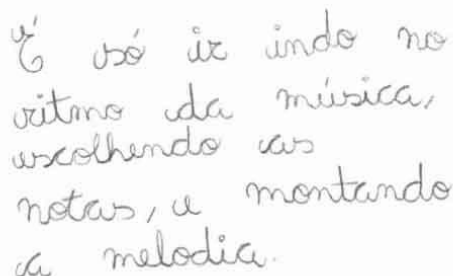 É só ir indo no
ritmo da música,
escolhendo as
notas, e montando
a melodia.